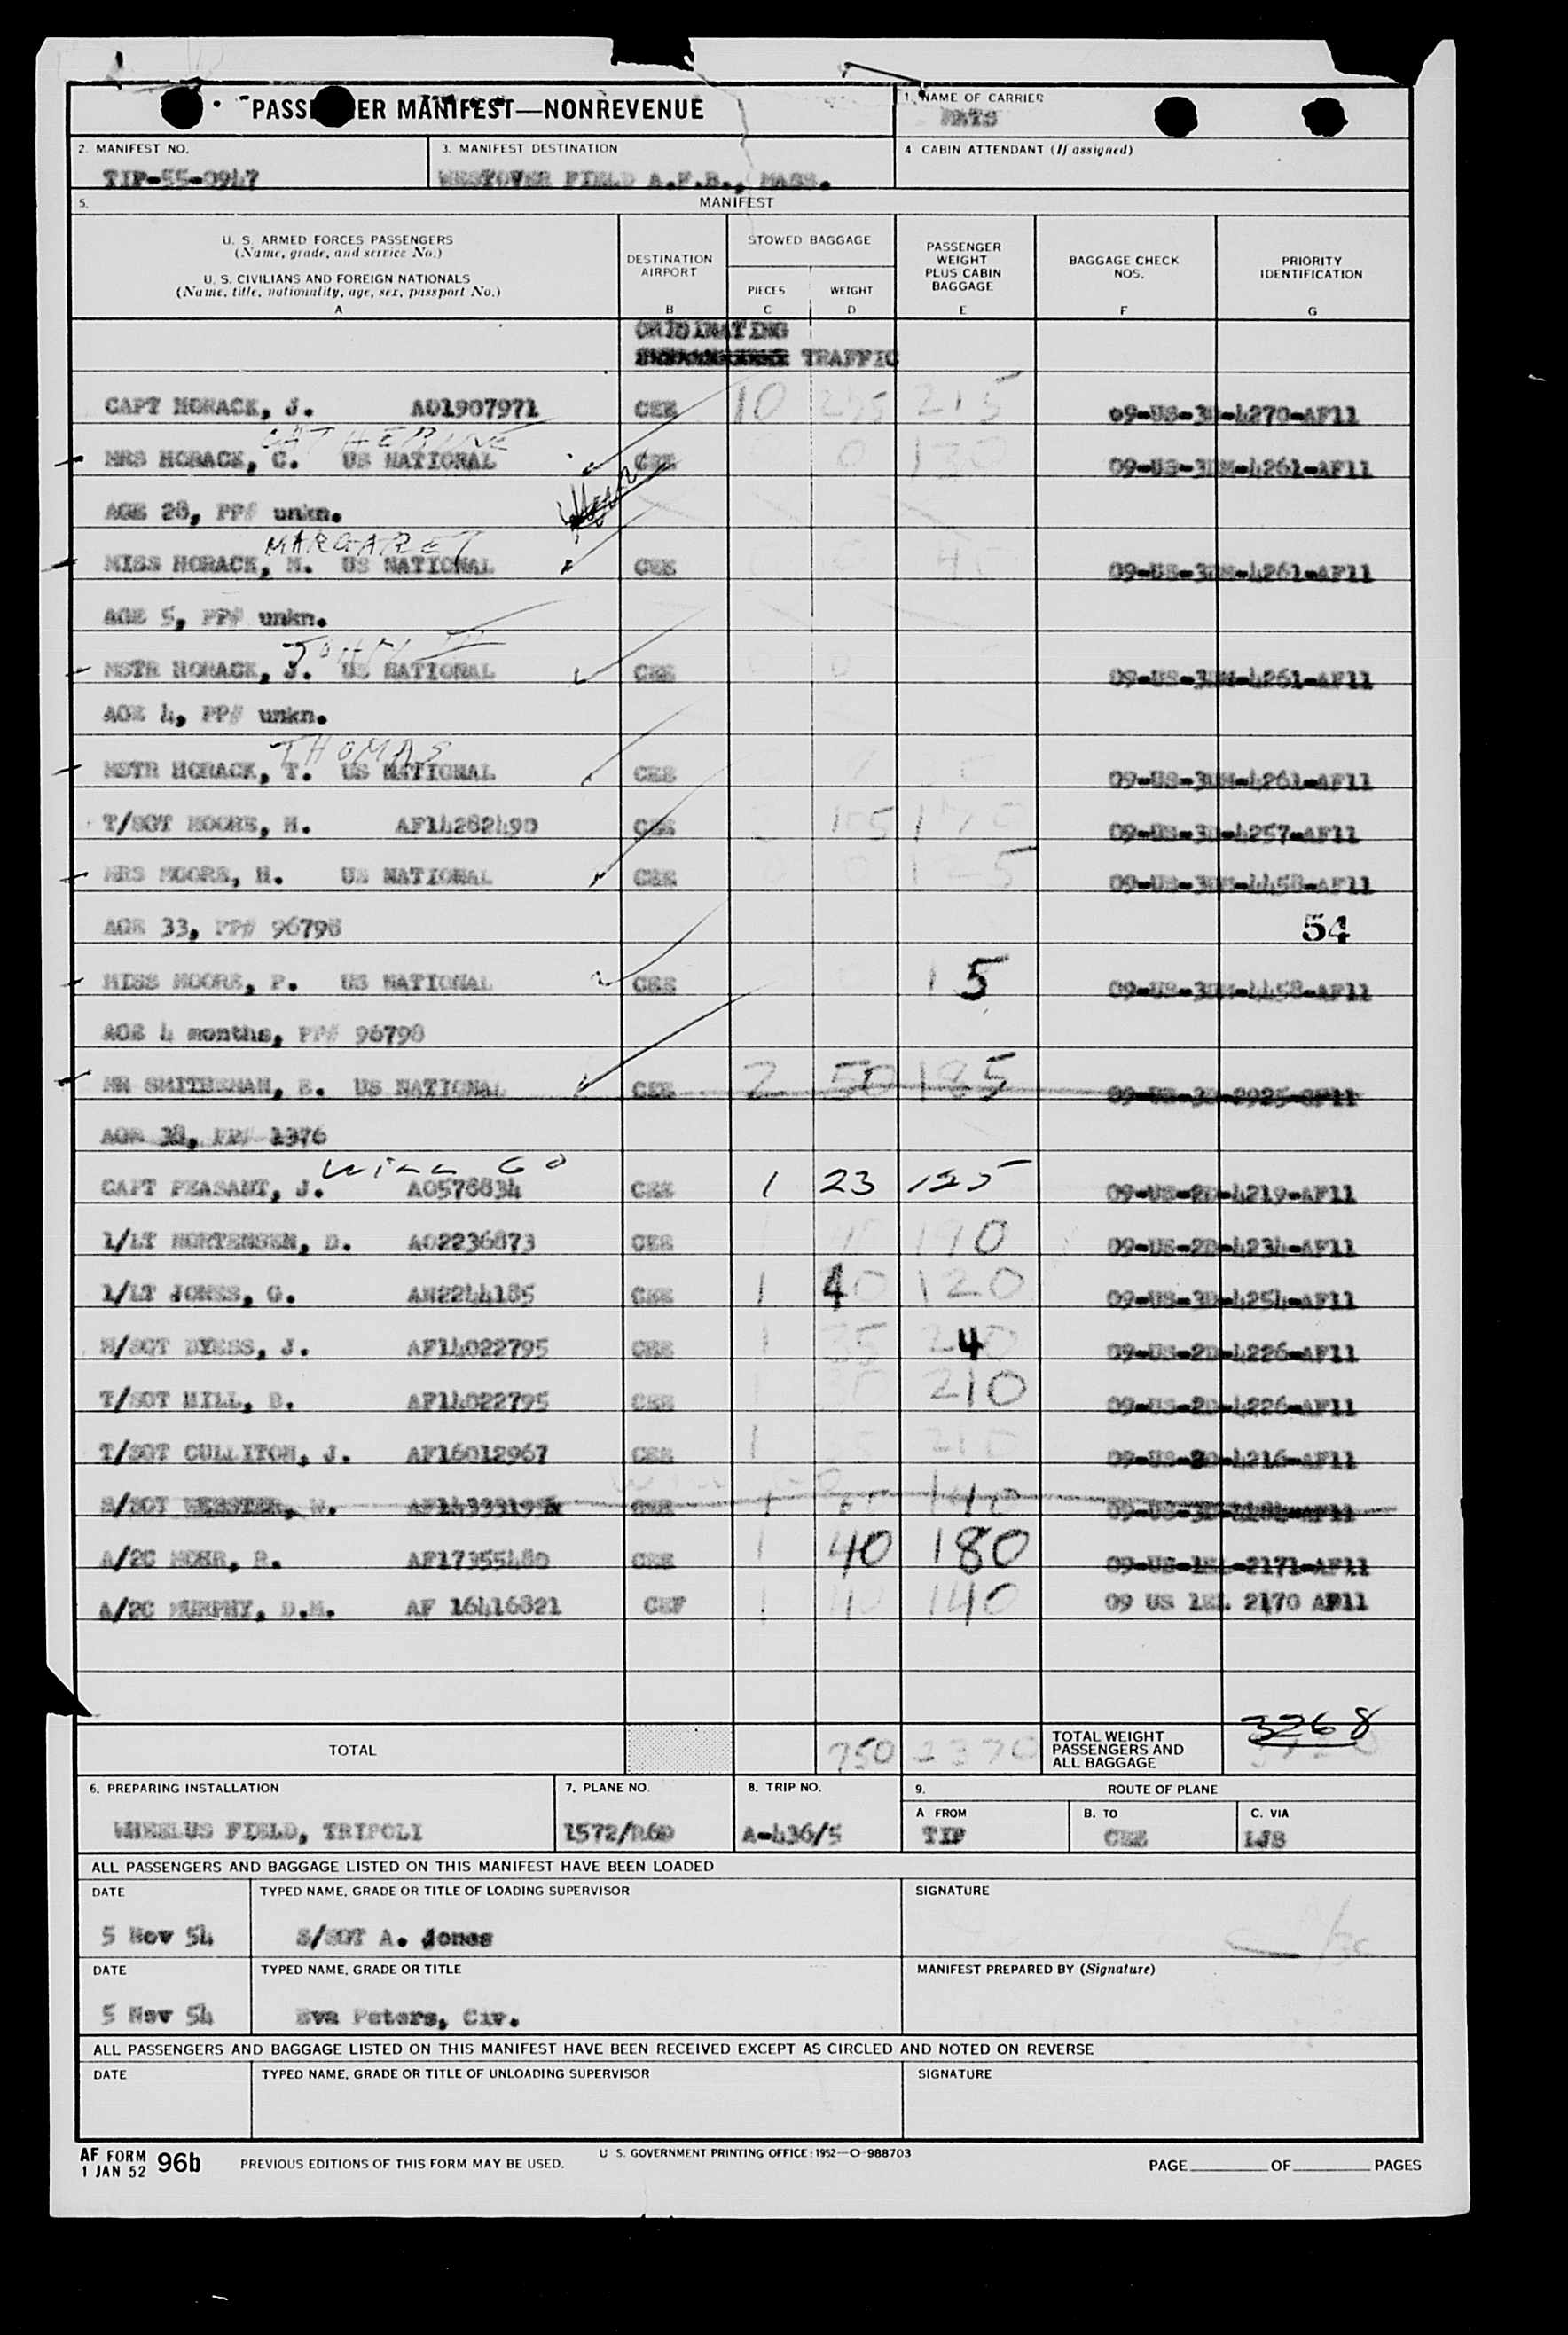 PASSENGER MANIFEST—NONREVENUE
1. NAME OF CARRIER
MATS
2. MANIFEST NO.
TIP-55-0947
3. MANIFEST DESTINATION
WESTOVER FIELD A.F.B., MASS.
4. CABIN ATTENDANT (If assigned)
5. MANIFEST
U. S. ARMED FORCES PASSENGERS
(Name, grade, and service No.)
U. S. CIVILIANS AND FOREIGN NATIONALS
(Name, title, nationality, age, sex, passport No.)
A
DESTINATION AIRPORT
B
STOWED BAGGAGE
PIECES
C
WEIGHT
D
PASSENGER WEIGHT PLUS CABIN BAGGAGE
E
BAGGAGE CHECK NOS.
F
PRIORITY IDENTIFICATION
G
ORIGINATING
TRAFFIC
CAPT HORACK, J. AO1907971 CEF 10 215 09-US-3D-4270-AF11
CATHERINE
MRS HORACK, C. US NATIONAL CEF 0 130 09-US-3DM-4261-AF11
AGE 28, PP# unkn.
MARGARET
MISS HORACK, M. US NATIONAL CEF 09-US-3DM-4261-AF11
AGE 5, PP# unkn.
JOHN III
MSTR HORACK, J. US NATIONAL CEF 0 0 09-US-3DM-4261-AF11
AGE 4, PP# unkn.
THOMAS
MSTR HORACK, T. US NATIONAL CEF 09-US-3DM-4261-AF11
T/SGT MOORE, H. AF14282490 CEF 170 09-US-3D-4257-AF11
MRS MOORE, H. US NATIONAL CEF 0 0 125 09-US-3DM-4458-AF11
AGE 33, PP# 96798
54
MISS MOORE, P. US NATIONAL CEF 15 09-US-3DM-4458-AF11
AGE 4 months, PP# 96798
MR SMITHERMAN, E. US NATIONAL CEF 2 50 185 09-US-3D-2925-GF11
AGE 38, PP# 1376
WILL GO
CAPT PEASANT, J. AO578834 CEF 1 23 195 09-US-2D-4219-AF11
1/LT MORTENSEN, D. AO2236873 CEF 190 09-US-2D-4234-AF11
1/LT JONES, G. AN2244185 CEF 1 40 120 09-US-3D-4254-AF11
M/SGT DYESS, J. AF14022795 CEF 1 35 240 09-US-2D-4226-AF11
T/SGT HILL, B. AF14022795 CEF 1 210 09-US-2D-4226-AF11
T/SGT CULLITON, J. AF16012967 CEF 1 210 09-US-2D-4216-AF11
S/SGT WEBSTER, W. CEF 1 140
A/2C MOHR, R. AF17355480 CEF 1 40 180 09-US-1EL-2171-AF11
A/2C MURPHY, D.M. AF 16416821 CEF 1 40 140 09 US 1EL 2170 AF11
TOTAL 750 2370
TOTAL WEIGHT PASSENGERS AND ALL BAGGAGE
3268
6. PREPARING INSTALLATION
WHEELUS FIELD, TRIPOLI
7. PLANE NO.
1572/R6D
8. TRIP NO.
A-436/5
9. ROUTE OF PLANE
A FROM
TIP
B. TO
CEF
C. VIA
LJS
ALL PASSENGERS AND BAGGAGE LISTED ON THIS MANIFEST HAVE BEEN LOADED
DATE
5 Nov 54
TYPED NAME, GRADE OR TITLE OF LOADING SUPERVISOR
S/SGT A. Jones
SIGNATURE
DATE
5 Nov 54
TYPED NAME, GRADE OR TITLE
Eva Peters, Civ.
MANIFEST PREPARED BY (Signature)
ALL PASSENGERS AND BAGGAGE LISTED ON THIS MANIFEST HAVE BEEN RECEIVED EXCEPT AS CIRCLED AND NOTED ON REVERSE
DATE
TYPED NAME, GRADE OR TITLE OF UNLOADING SUPERVISOR
SIGNATURE
AF FORM 96b
1 JAN 52
PREVIOUS EDITIONS OF THIS FORM MAY BE USED.
U. S. GOVERNMENT PRINTING OFFICE: 1952—O-988703
PAGE OF PAGES